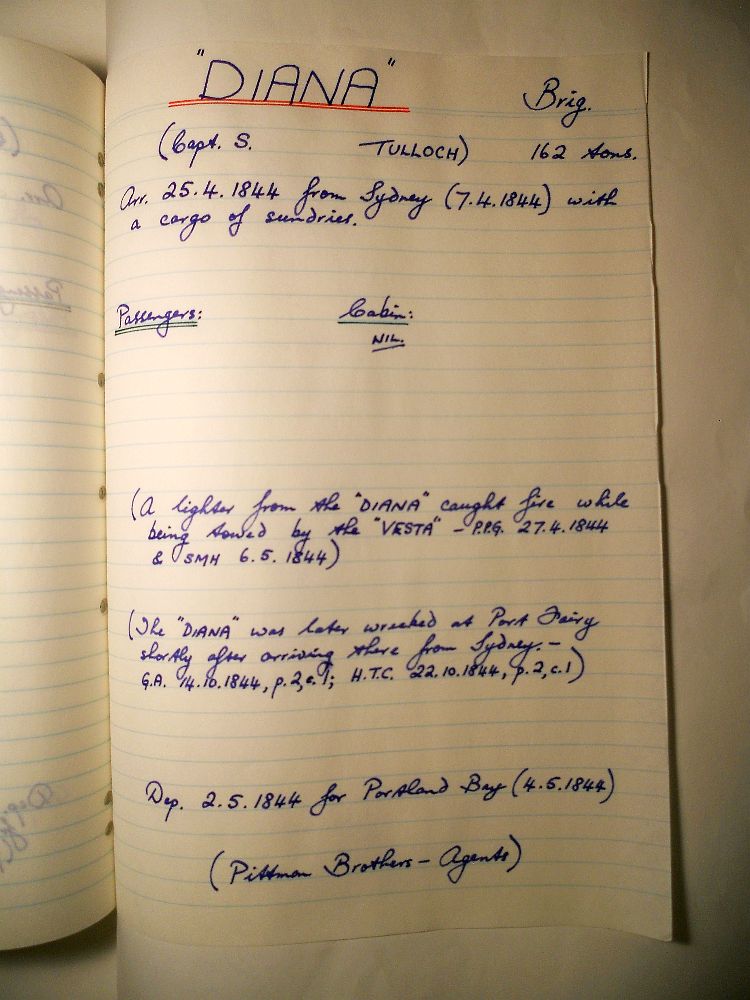 "DIANA" Brig.
(Capt. S. TULLOCH) 162 tons.
Arr. 25.4.1844 from Sydney (7.4.1844) with
a cargo of sundries.
Passengers: Cabin:
NIL.
(A lighter from the "DIANA" caught fire while
being towed by the "VESTA" - P.P.G. 27.4.1844
& SMH 6.5.1844)
(The "DIANA" was later wrecked at Port Fairy
shortly after arriving there from Sydney. -
G.A. 14.10.1844, p.2, c.1; H.T.C. 22.10.1844, p.2, c.1)
Dep. 2.5.1844 for Portland Bay (4.5.1844)
(Pittman Brothers - Agents)